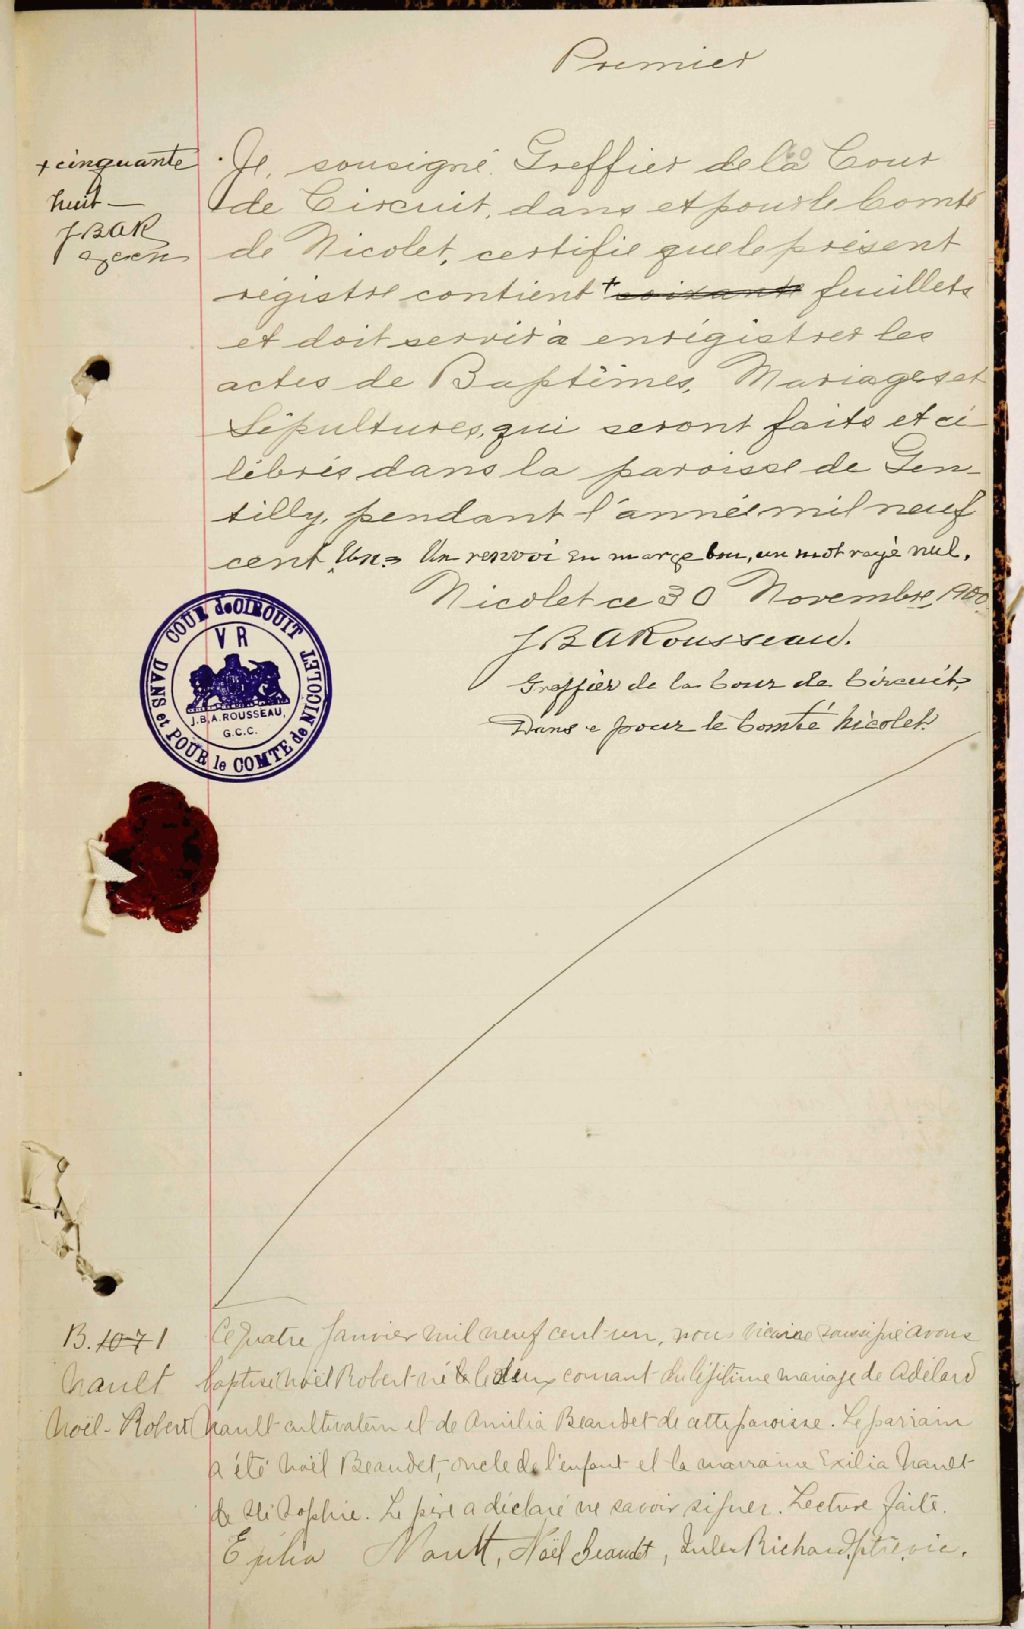 Premier
+ cinquante
huit —
JBAR
gccn
Je, soussigné, Greffier de la Cour
de Circuit, dans et pour le Comté
de Nicolet, certifie que le présent
régistre contient + soixante feuillets
et doit servir à enrégistrer les
actes de Baptêmes, Mariages et
Sépultures, qui seront faits et cé-
lébrés dans la paroisse de Gen-
tilly, pendant l'année mil neuf
cent Un. = Un renvoi en marge bon, un mot rayé nul.
Nicolet ce 30 Novembre, 1900
JBARousseau.
Greffier de la Cour de Circuit,
Dans e pour le Comté Nicolet.
COUR de CIRCUIT
DANS et POUR le COMTE de NICOLET
V R
J.B.A. ROUSSEAU,
G.C.C.
B. 1071
Nault
Noël-Robert
Ce quatre Janvier mil neuf cent un, nous vicaire soussigné avons
baptisé Noël Robert né le deux courant du légitime mariage de Adélard
Nault cultivateur et de Amilia Beaudet de cette paroisse. Le parrain
a été Noël Beaudet, oncle de l'enfant et la marraine Exilia Nault
de Ste Sophie. Le père a déclaré ne savoir signer. Lecture faite.
Nault, Noël Beaudet, Jules Richard, ptre vic.